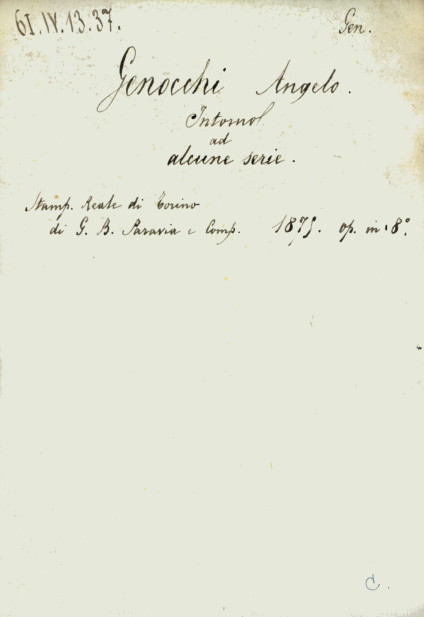 61.IV.13.37.
Gen.
Genocchi Angelo.
Intorno
ad
alcune serie.
Stamp. Reale di Torino
di G. B. Paravia e Comp. 1875. op. in 8°.
C.